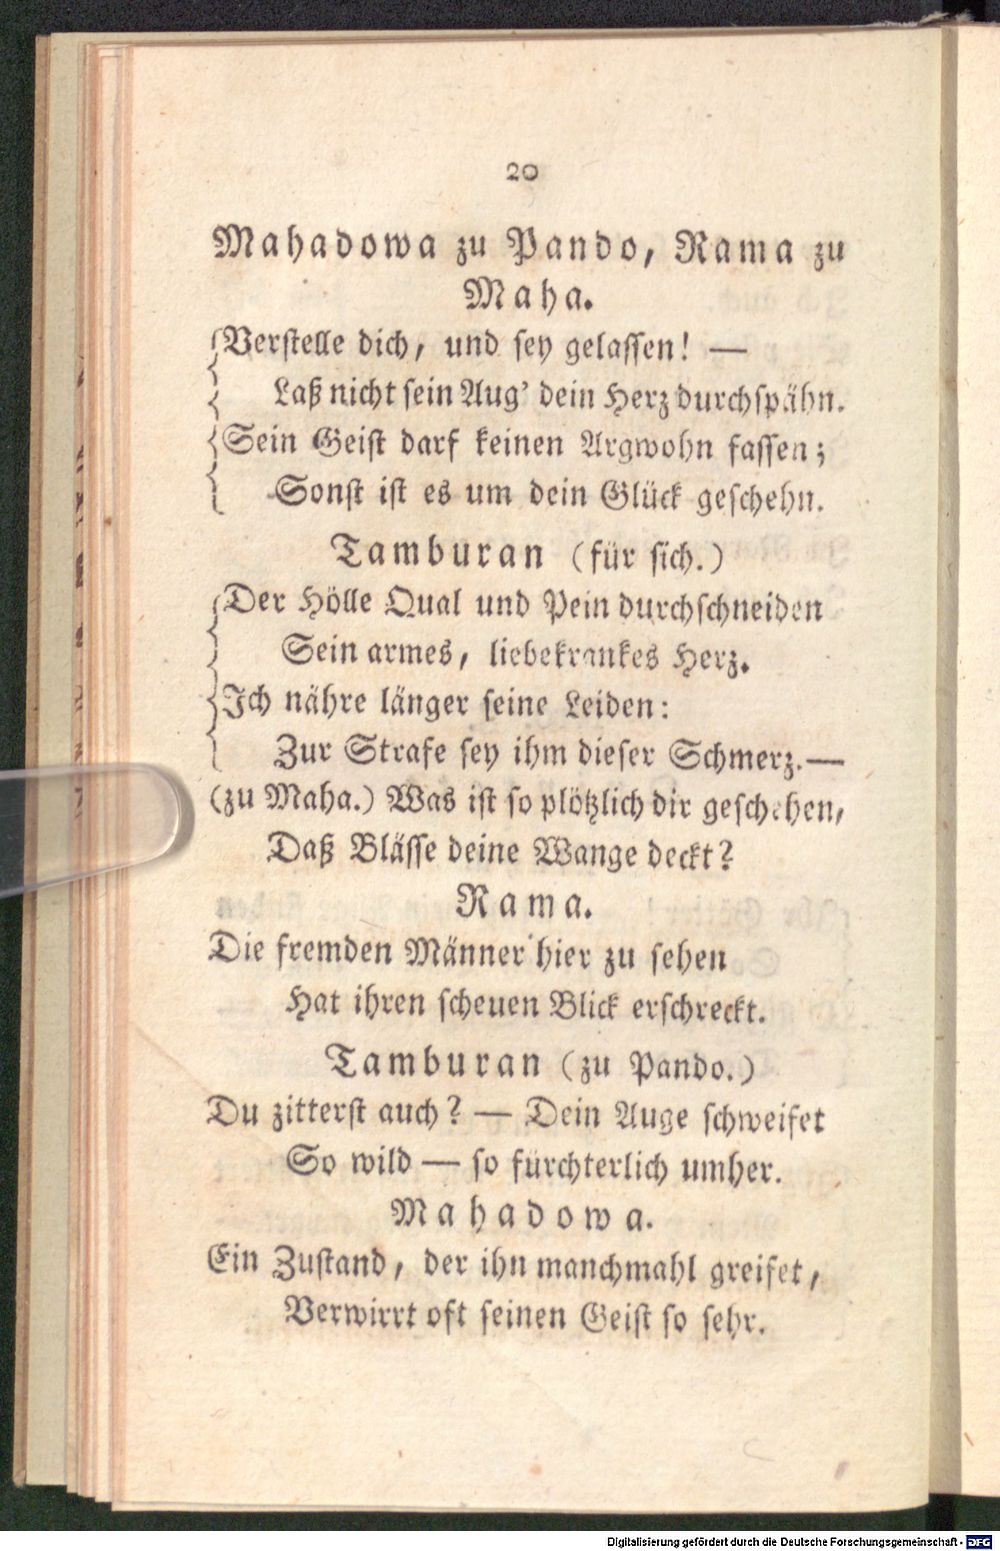 20
Mahadowa zu Pando, Rama zu
Maha.
Verstelle dich, und sey gelassen! —
Laß nicht sein Aug' dein Herz durchspähn.
Sein Geist darf keinen Argwohn fassen;
Sonst ist es um dein Glück geschehn.
Tamburan (für sich.)
Der Hölle Qual und Pein durchschneiden
Sein armes, liebekrankes Herz.
Ich nähre länger seine Leiden:
Zur Strafe sey ihm dieser Schmerz.—
(zu Maha.) Was ist so plötzlich dir geschehen,
Daß Blässe deine Wange deckt?
Rama.
Die fremden Männer hier zu sehen
Hat ihren scheuen Blick erschreckt.
Tamburan (zu Pando.)
Du zitterst auch? — Dein Auge schweifet
So wild — so fürchterlich umher.
Mahadowa.
Ein Zustand, der ihn manchmahl greifet,
Verwirrt oft seinen Geist so sehr.
Digitalisierung gefördert durch die Deutsche Forschungsgemeinschaft - DFG